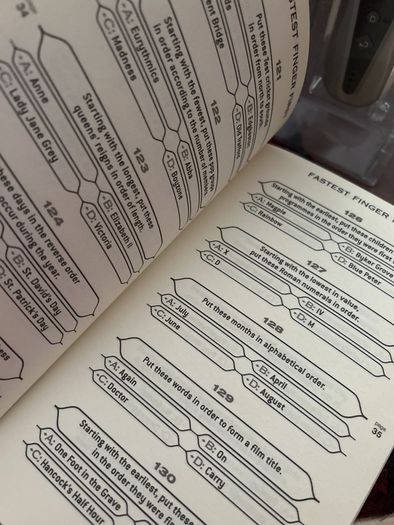 page
34
FASTEST FINGER FIRST
121
Put these Test cricket grounds
in order from north to south.
B: Edgbaston
D: Old Trafford
ent Bridge
122
Starting with the fewest, put these pop groups
in order according to the number of members.
A: Eurythmics
B: Abba
C: Madness
D: Boyzone
123
Starting with the longest, put these
queens' reigns in order of length.
A: Anne
B: Elizabeth I
C: Lady Jane Grey
D: Victoria
124
these days in the reverse order
occur during the year.
B: St. David's Day
D: St. Patrick's Day
ness
FASTEST FINGER
126
Starting with the earliest, put these children's
programmes in the order they were first
A: Magpie
B: Byker Grove
C: Rainbow
D: Blue Peter
127
Starting with the lowest in value,
put these Roman numerals in order.
A: X
B: IV
C: D
D: M
128
Put these months in alphabetical order.
A: July
B: April
C: June
D: August
129
Put these words in order to form a film title.
A: Again
B: On
C: Doctor
D: Carry
130
Starting with the earliest, put these
in the order they were first
A: One Foot in the Grave
C: Hancock's Half Hour
page
35